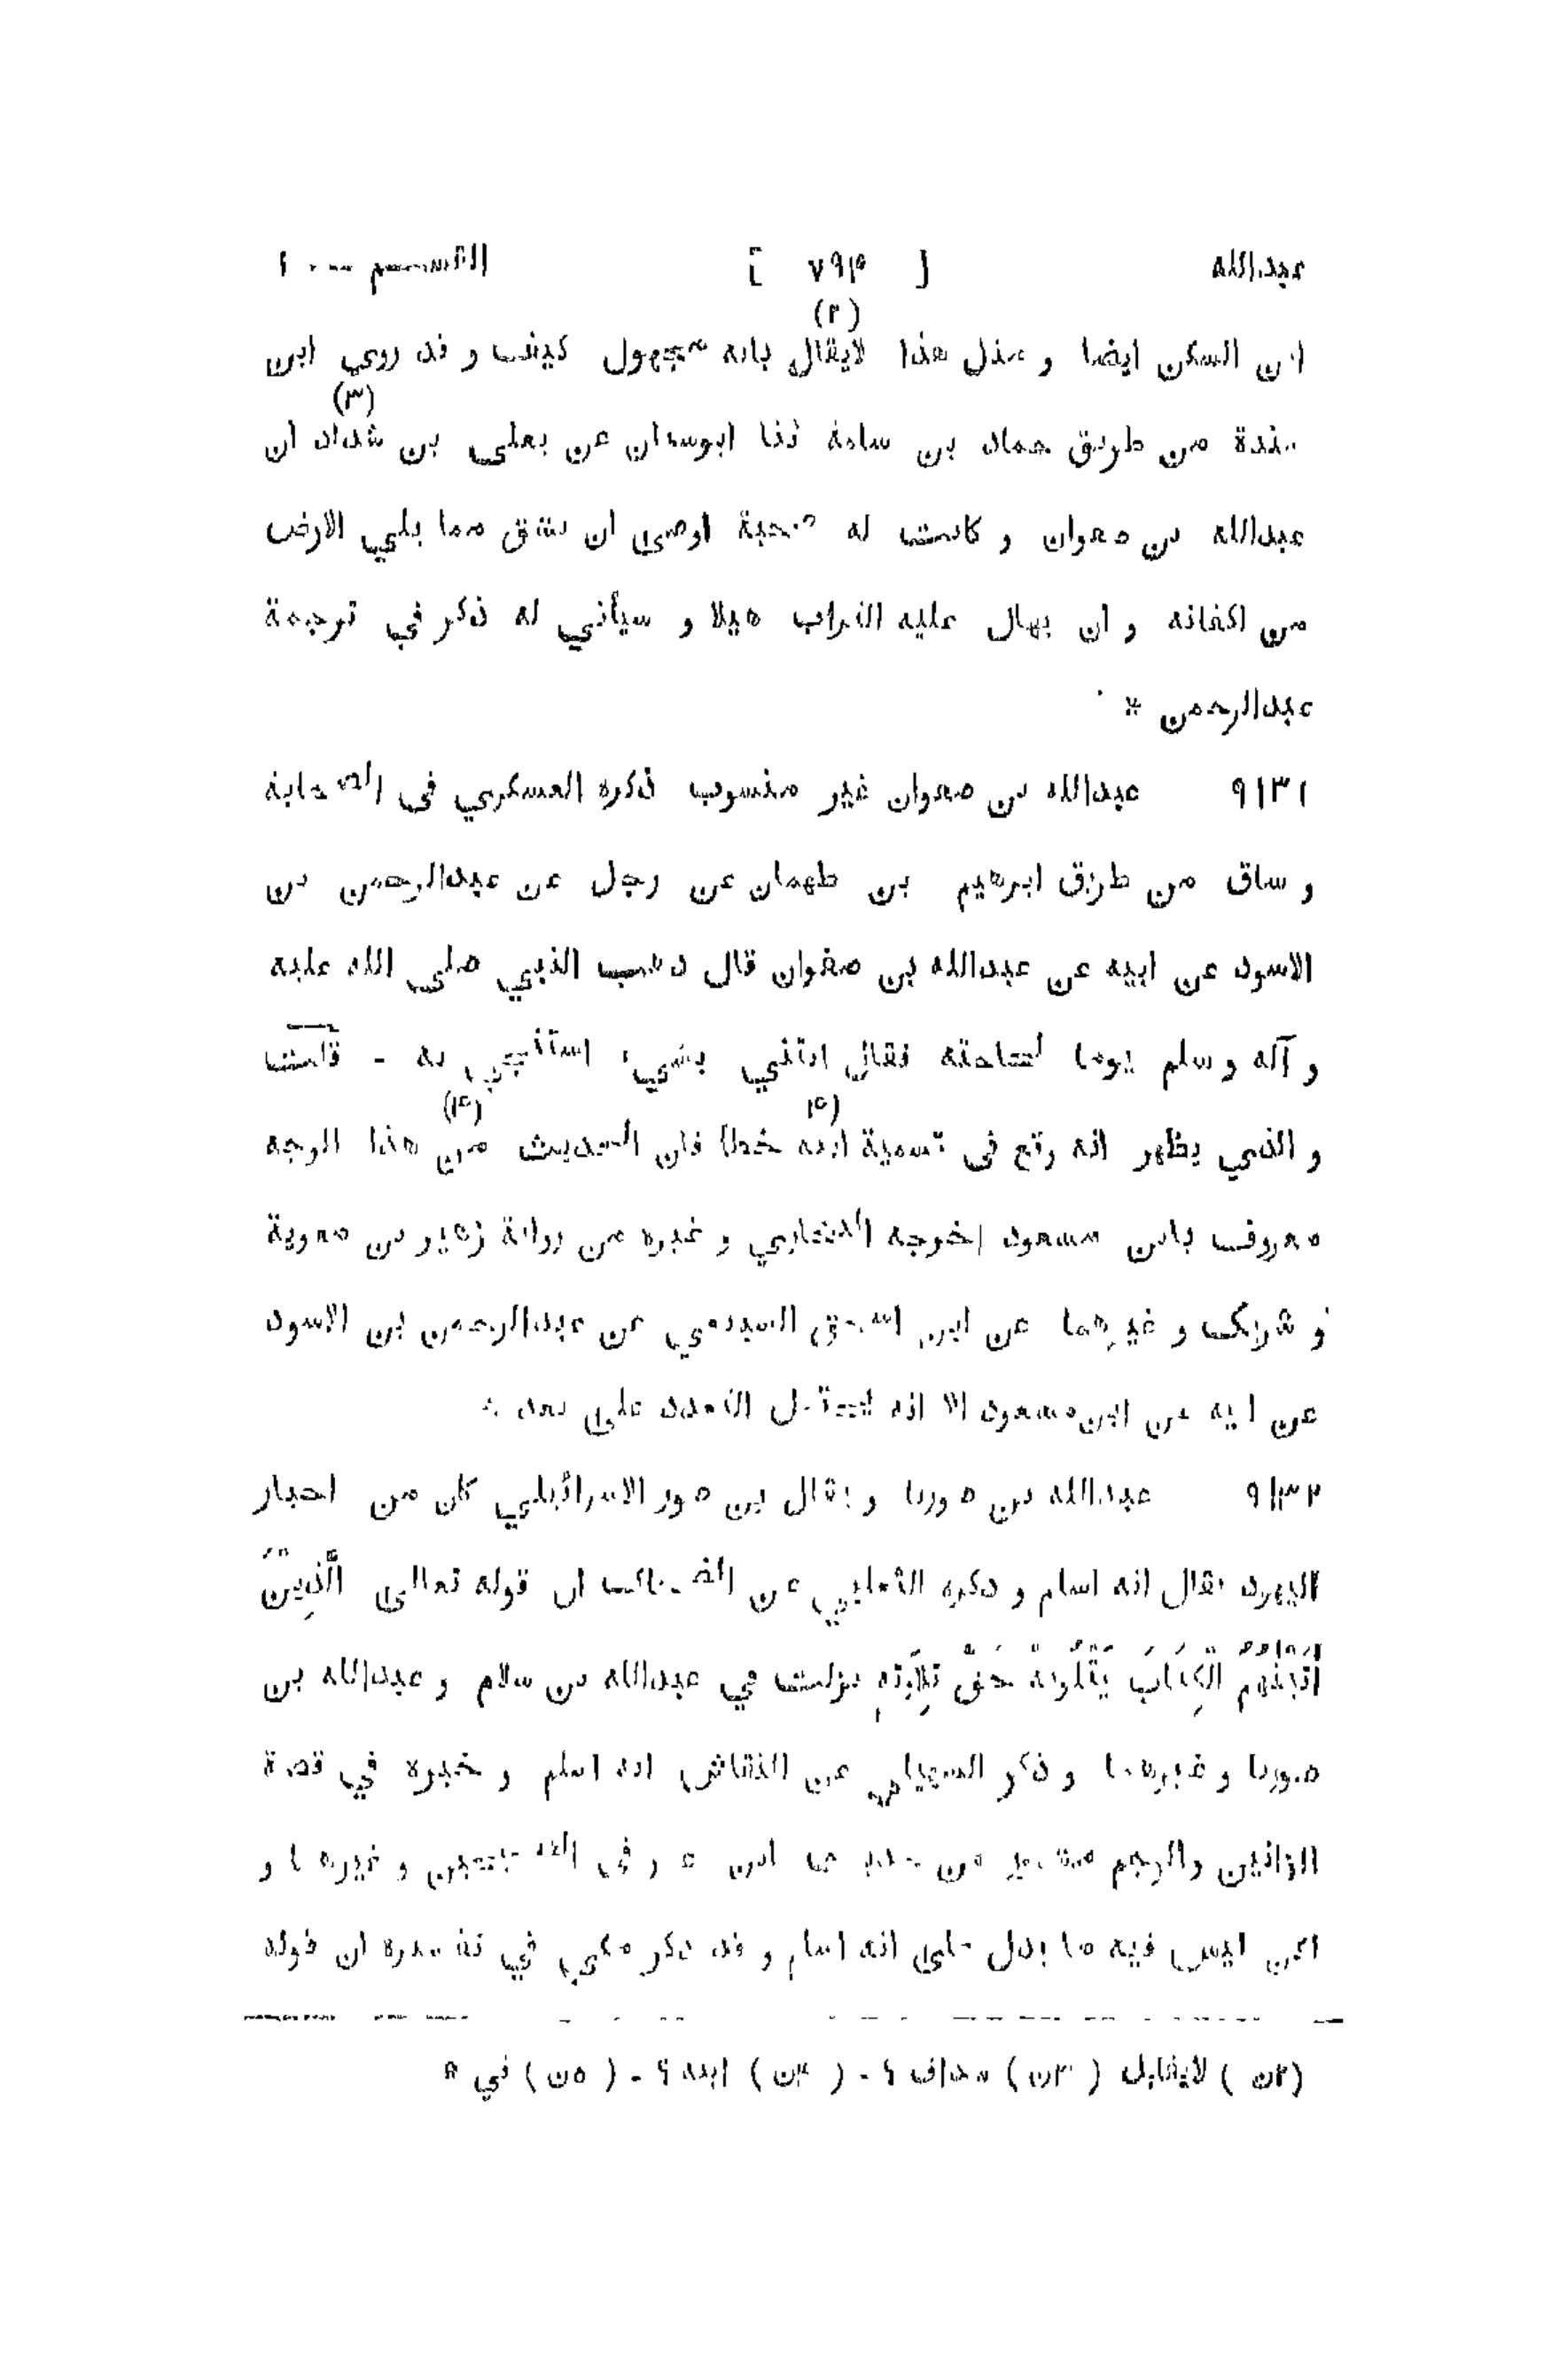 عبدالله [ ٧٩۴ ] القسم ١
ابن السكن ايضا و مثل هذا لايقال (٢) بانه مجهول كيف و قد روي ابن
مندة من طريق حماد بن سلمة ثنا ابوسنان عن يعلى بن شداد (٣) ان
عبدالله بن صفوان و كانت له صحبة اوصى ان يشق مما يلي الارض
من اكفانه و ان يهال عليه التراب هيلا و سيأتي له ذكر في ترجمة
عبدالرحمن *
٩١٣١ عبدالله بن صفوان غير منسوب ذكره العسكري فى الصحابة
و ساق من طريق ابرهيم بن طهمان عن رجل عن عبدالرحمن بن
الاسود عن ابيه عن عبدالله بن صفوان قال ذهب النبي صلى الله عليه
و آله و سلم يوما لحاجته فقال ائتني بشيء استنجي به - قلت
و الذي يظهر انه وقع فى تسمية ابيه (۴) خطا فان الحديث من (۴) هذا الوجه
معروف بابن مسعود اخرجه البخاري و غيره من رواية زهير بن معوية
و شريك و غيرهما عن ابي اسحق السبيعي عن عبدالرحمن بن الاسود
عن ابيه عن ابن مسعود الا انه يحتمل التعدد على بعد *
٩١٣٢ عبدالله بن صوريا و يقال بن صور الاسرائيلي كان من احبار
اليهود يقال انه اسلم و ذكره الثعلبي عن الضحاك ان قوله تعالى الَّذِيْنَ
اٰتَيْنٰهُمُ الْكِتَابَ يَتْلُونَهُ حَقَّ تِلَاوَتِهِ نزلت في عبدالله بن سلام و عبدالله بن
صوريا و غيرهما و ذكر السهيلي عن النقاش انه اسلم و خبره في قصة
الزانيين والرجم مشهور من حديث ابن عمر فى الصحيحين و غيرهما و
لكن ليس فيه ما يدل على انه اسلم و قد ذكر مكي في تفسيره ان قوله
(٢ن) لايقابل (٣ن) سداف ؟ - (۴ن) ابيه ؟ - (٥ن) في *